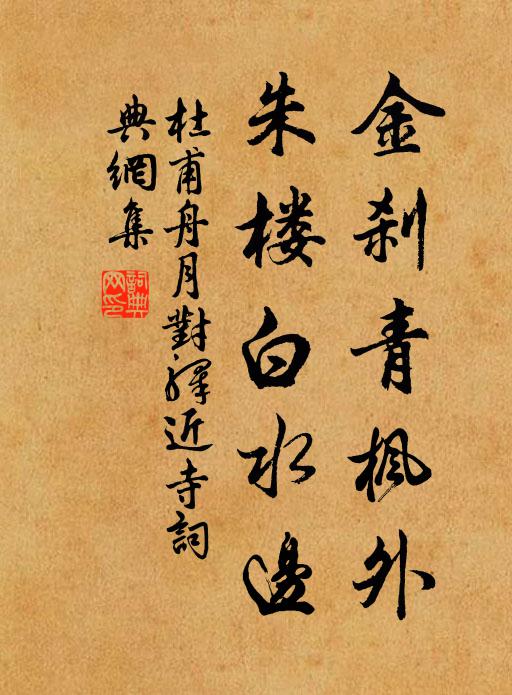 金刹青楓外
朱楼白水邊
杜甫舟月對驛近寺詞
典網集
詞典
网印